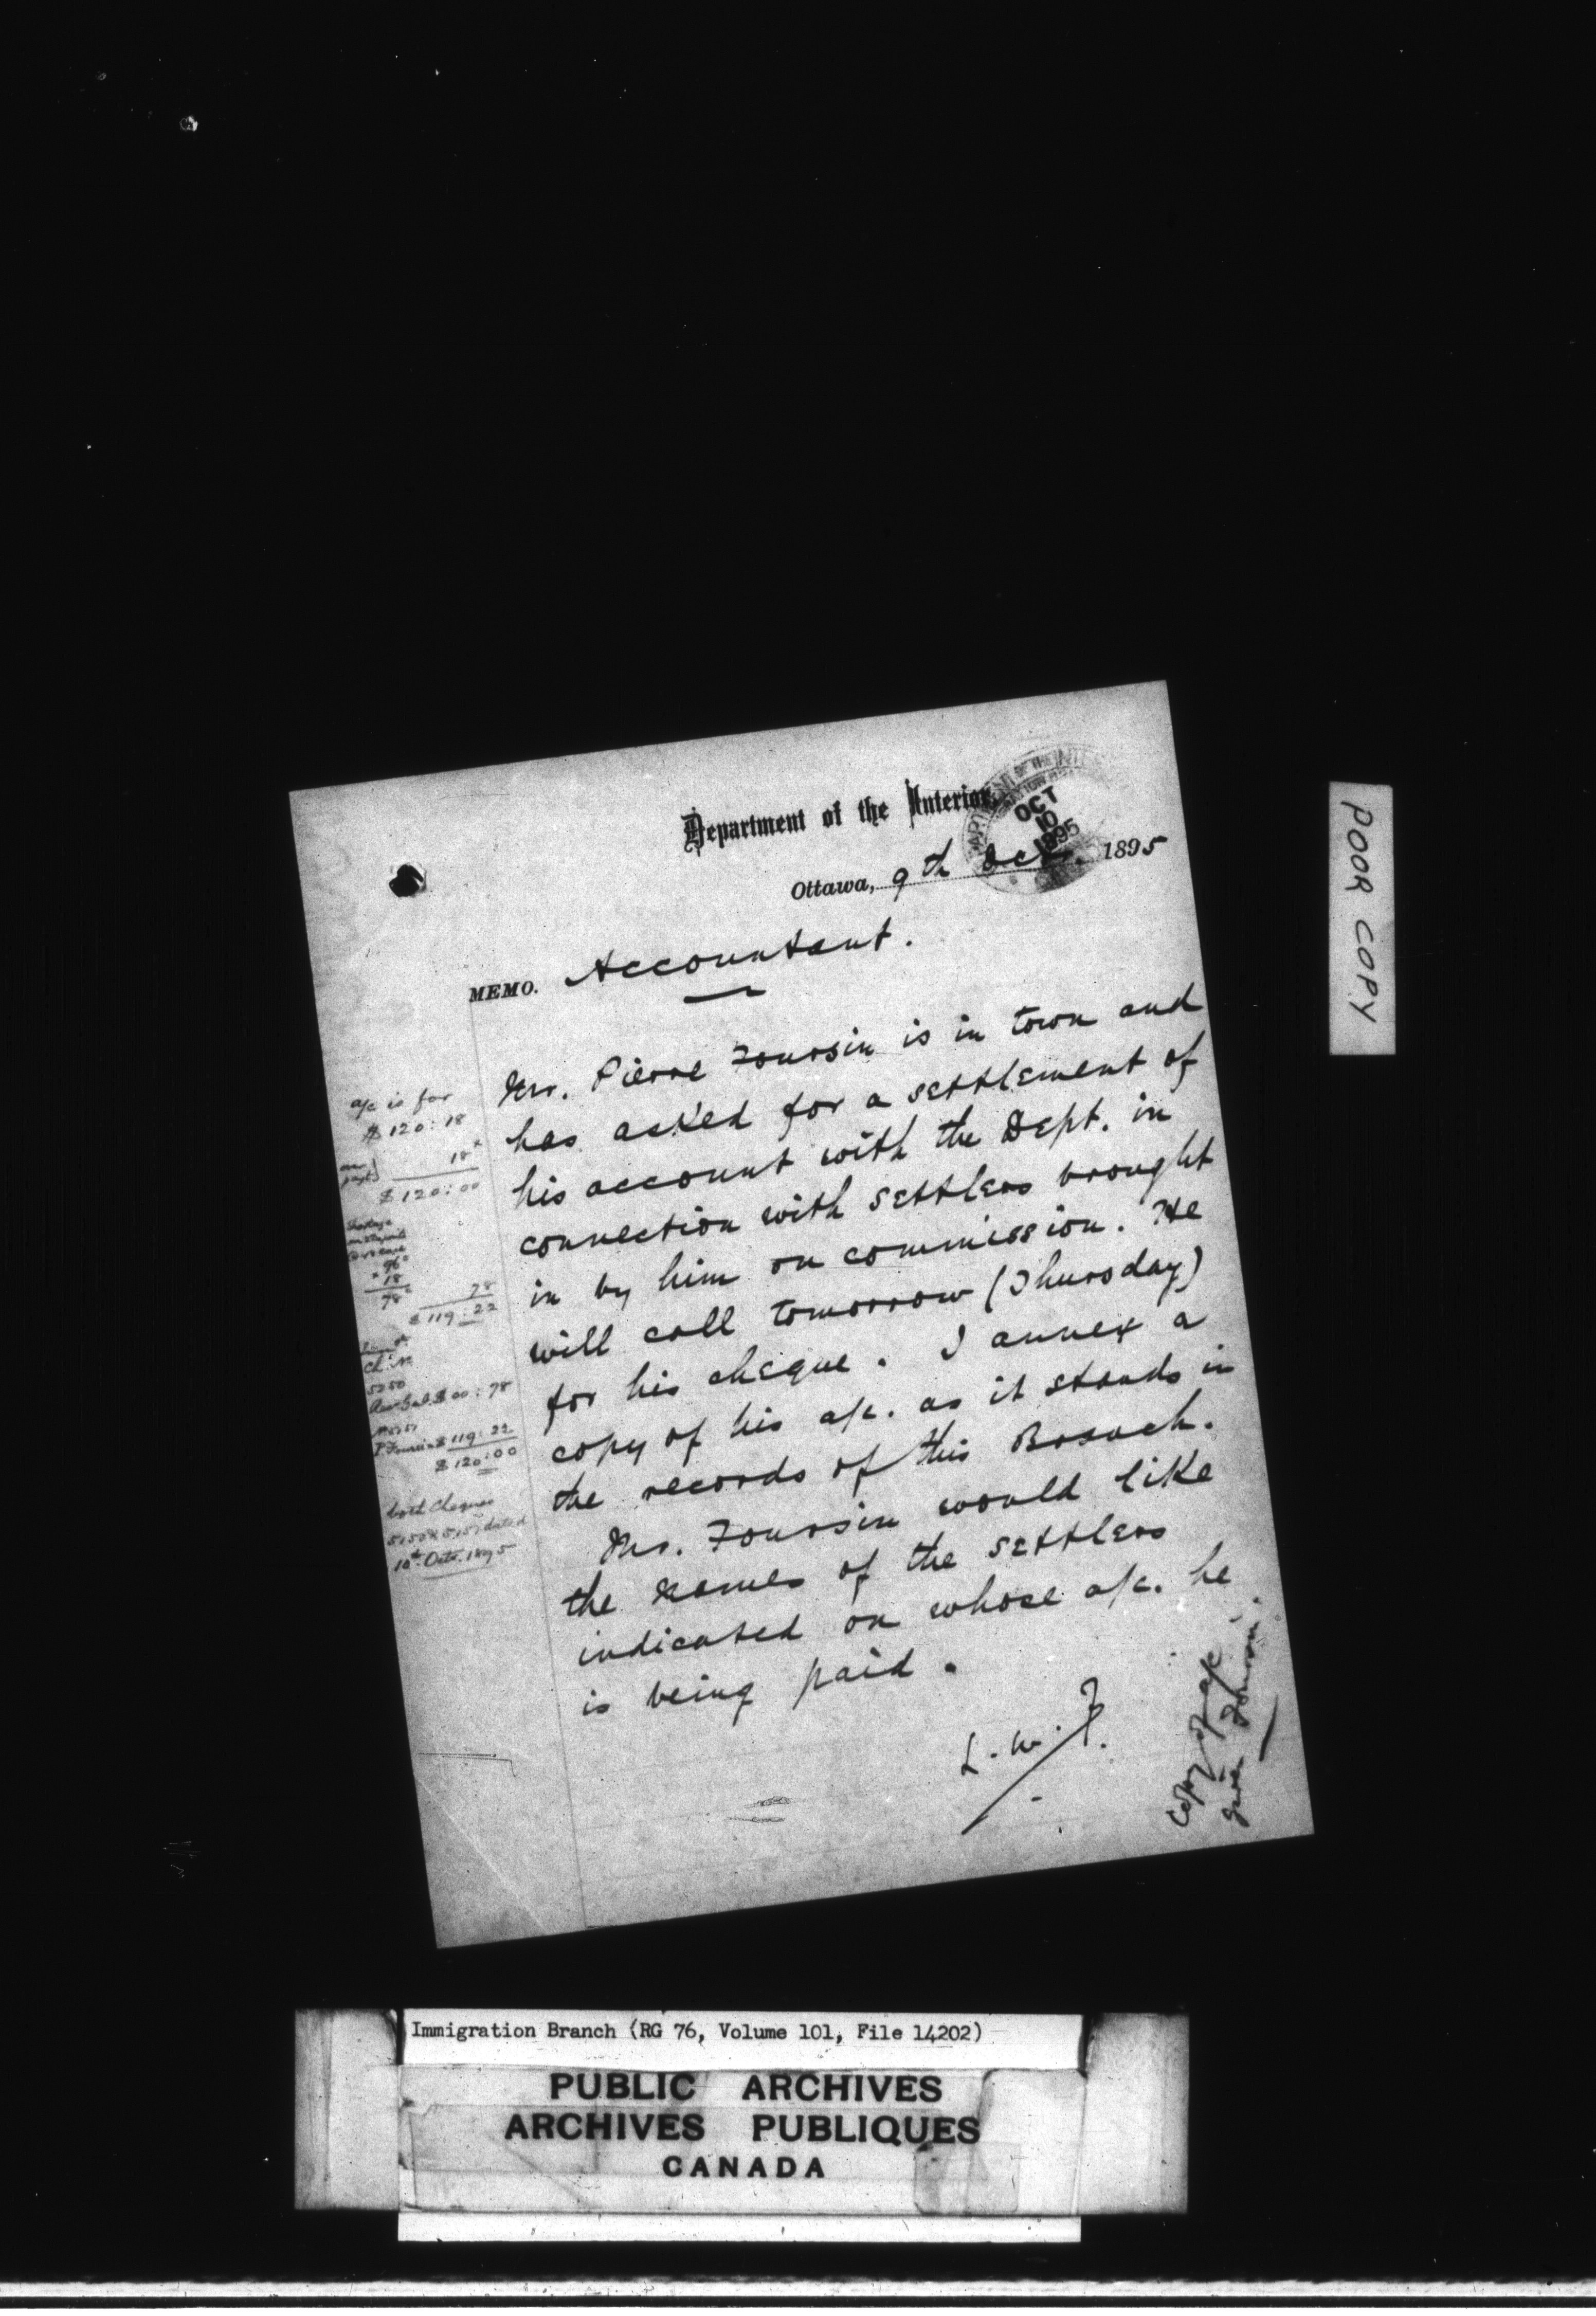 Department of the Interior,
DEPARTMENT OF THE INTERIOR
OCT
10
1895
Ottawa, 9th Oct. 1895
MEMO. Accountant.
Mr. Pierre Foursin is in town and
has asked for a settlement of
his account with the Dept. in
connection with settlers brought
in by him on commission. He
will call tomorrow (Thursday)
for his cheque. I annex a
copy of his a/c. as it stands in
the records of this Branch.
Mr. Foursin would like
the names of the settlers
indicated on whose a/c. he
is being paid.
L. W. F.
a/c is for
$ 120:18
18
$ 120:00
96
18
78
78
$ 119:22
5050
$ 00:78
P. Foursin $ 119:22
$ 120:00
both Cheques
dated
10th Octr. 1895
Copy of a/c
given Foursin.
POOR COPY
Immigration Branch (RG 76, Volume 101, File 14202)
PUBLIC ARCHIVES
ARCHIVES PUBLIQUES
CANADA